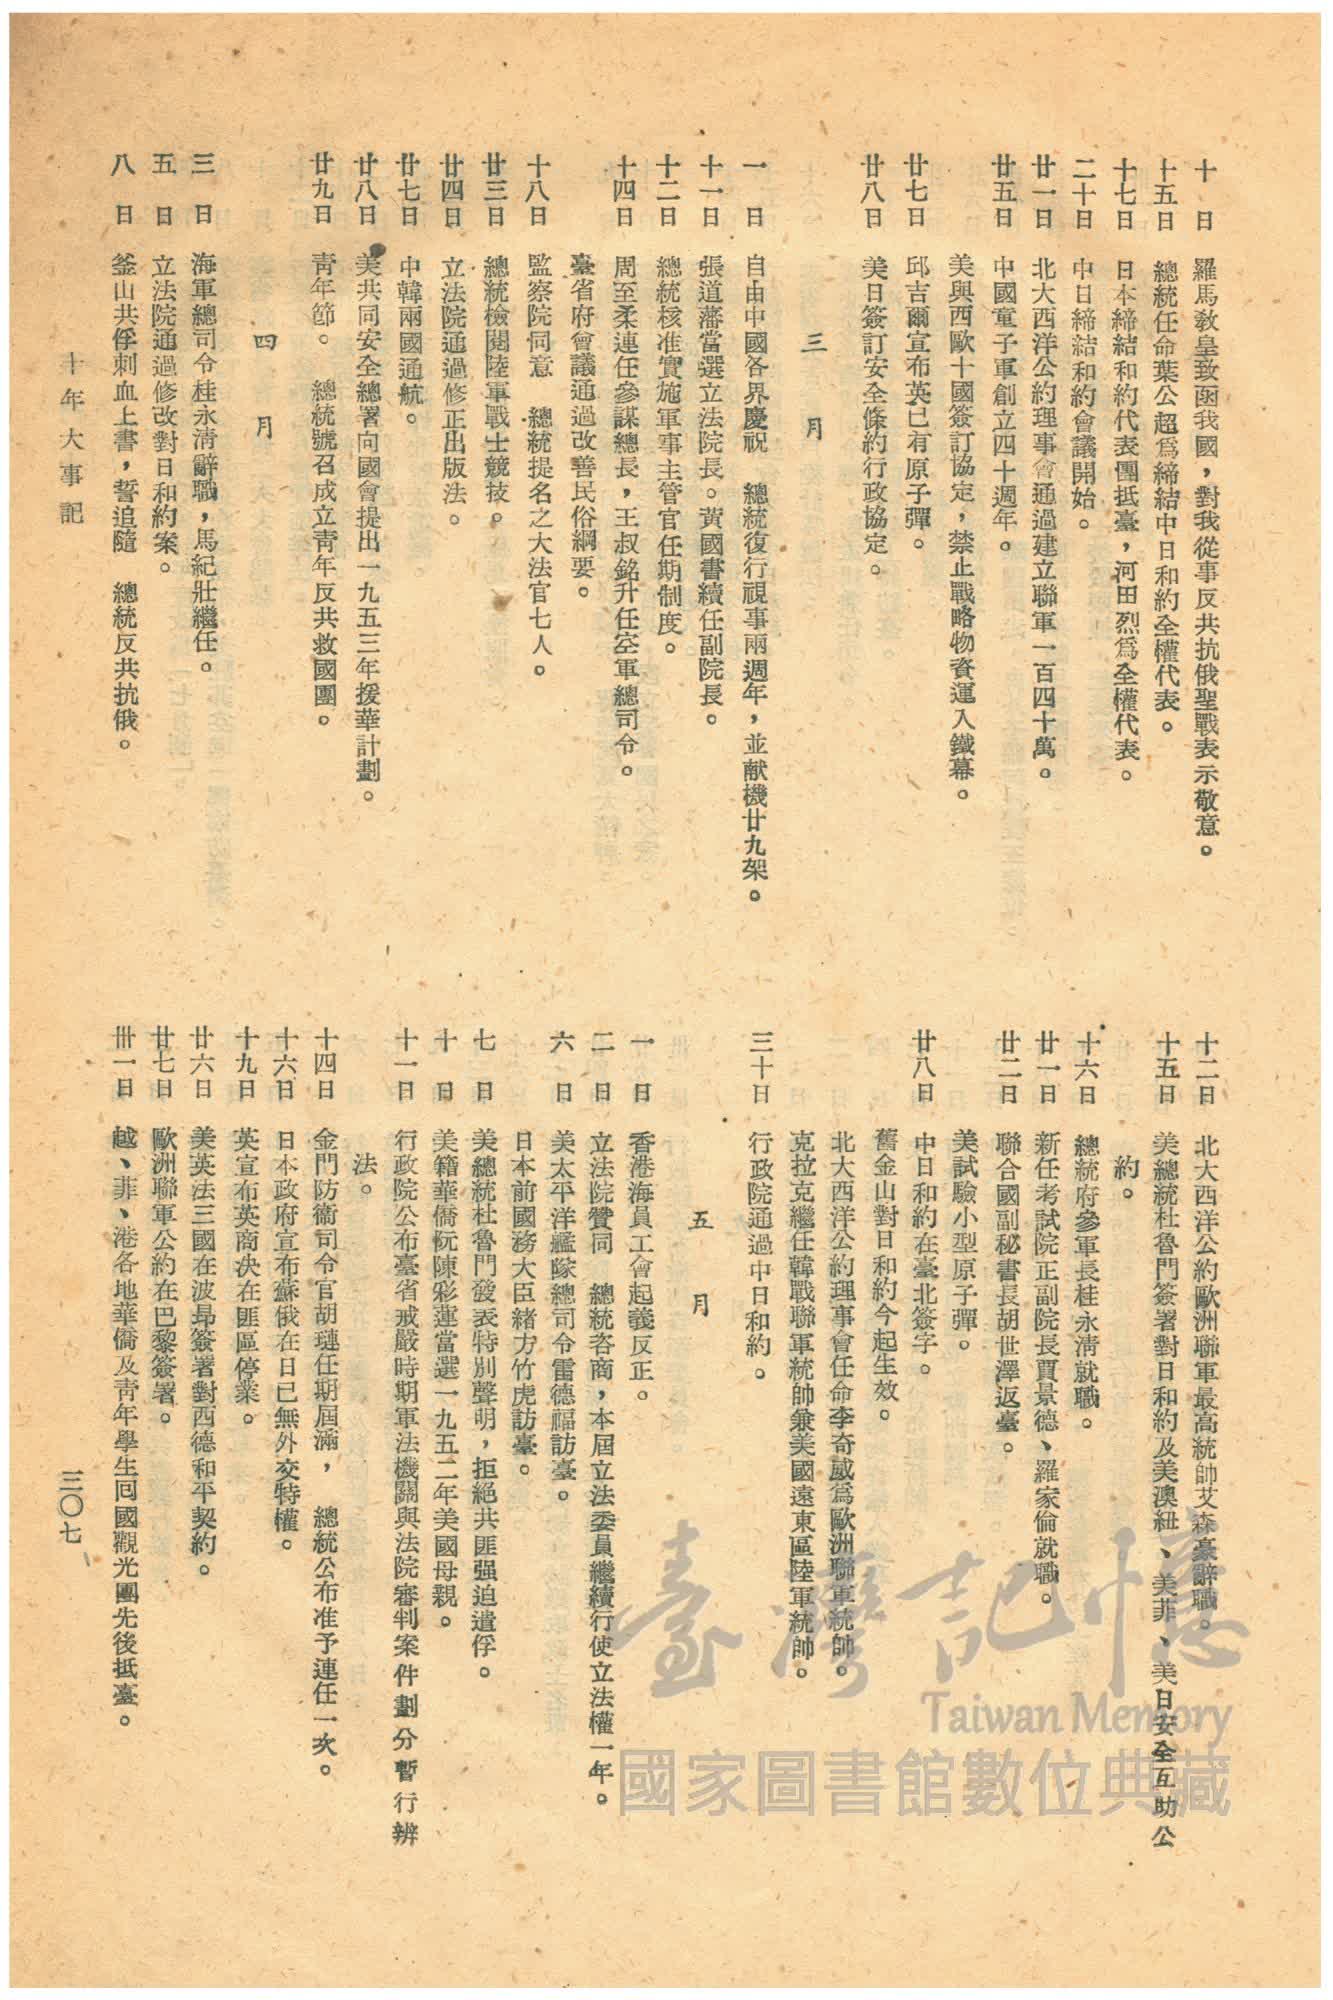 十　日　羅馬教皇致函我國，對我從事反共抗俄聖戰表示敬意。
十五日　總統任命葉公超爲締結中日和約全權代表。
十七日　日本締結和約代表團抵臺，河田烈爲全權代表。
二十日　中日締結和約會議開始。
廿一日　北大西洋公約理事會通過建立聯軍一百四十萬。
廿五日　中國童子軍創立四十週年。
美與西歐十國簽訂協定，禁止戰略物資運入鐵幕。
廿七日　邱吉爾宣布英已有原子彈。
廿八日　美日簽訂安全條約行政協定。
三　月
一　日　自由中國各界慶祝　總統復行視事兩週年，並献機廿九架。
十一日　張道藩當選立法院長。黃國書續任副院長。
十二日　總統核准實施軍事主管官任期制度。
十四日　周至柔連任參謀總長，王叔銘升任空軍總司令。
臺省府會議通過改善民俗綱要。
十八日　監察院同意　總統提名之大法官七人。
廿三日　總統檢閱陸軍戰士競技。
廿四日　立法院通過修正出版法。
廿七日　中韓兩國通航。
廿八日　美共同安全總署向國會提出一九五三年援華計劃。
廿九日　靑年節。　總統號召成立靑年反共救國團。
四　月
三　日　海軍總司令桂永淸辭職，馬紀壯繼任。
五　日　立法院通過修改對日和約案。
八　日　釜山共俘刺血上書，誓追隨　總統反共抗俄。
十二日　北大西洋公約歐洲聯軍最高統帥艾森豪辭職。
十五日　美總統杜魯門簽署對日和約及美澳紐、美菲、美日安全互助公
約。
十六日　總統府參軍長桂永淸就職。
廿一日　新任考試院正副院長賈景德、羅家倫就職。
廿二日　聯合國副秘書長胡世澤返臺。
美試驗小型原子彈。
廿八日　中日和約在臺北簽字。
舊金山對日和約今起生效。
北大西洋公約理事會任命李奇威爲歐洲聯軍統帥。
克拉克繼任韓戰聯軍統帥兼美國遠東區陸軍統帥。
三十日　行政院通過中日和約。
五　月
一　日　香港海員工會起義反正。
二　日　立法院贊同　總統咨商，本屆立法委員繼續行使立法權一年。
六　日　美太平洋艦隊總司令雷德福訪臺。
日本前國務大臣緒方竹虎訪臺。
七　日　美總統杜魯門發表特別聲明，拒絕共匪强迫遣俘。
十　日　美籍華僑阮陳彩蓮當選一九五二年美國母親。
十一日　行政院公布臺省戒嚴時期軍法機關與法院審判案件劃分暫行辦
法。
十四日　金門防衞司令官胡璉任期屆滿，　總統公布准予連任一次。
十六日　日本政府宣布蘇俄在日已無外交特權。
十九日　英宣布英商決在匪區停業。
廿六日　美英法三國在波昂簽署對西德和平契約。
廿七日　歐洲聯軍公約在巴黎簽署。
卅一日　越、菲、港各地華僑及靑年學生回國觀光團先後抵臺。
十年大事記
三〇七
臺灣記憶
Taiwan Memory
國家圖書館數位典藏